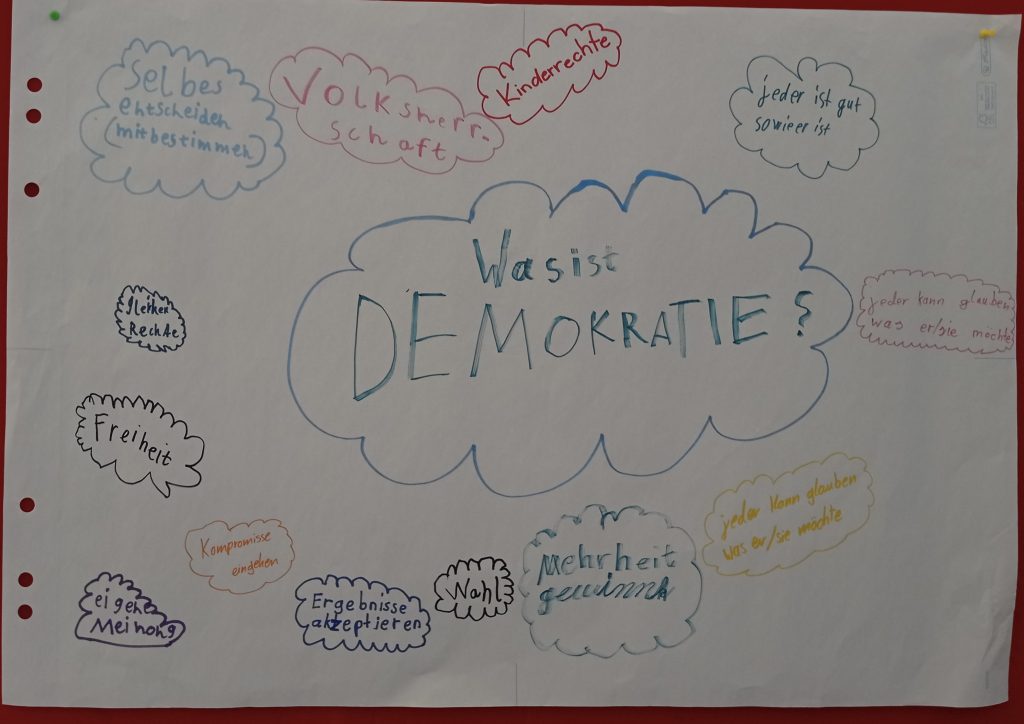 Selbes
entscheiden
(mitbestimmen)
Volksherr-
schaft
Kinderrechte
jeder ist gut
so wie er ist
Was ist
DEMOKRATIE?
jeder kann glauben
was er/sie möchte
gleiche
Rechte
Freiheit
Kompromisse
eingehen
eigene
Meinong
Ergebnisse
akzeptieren
Wahl
Mehrheit
gewinnt
jeder kann glauben
was er/sie möchte